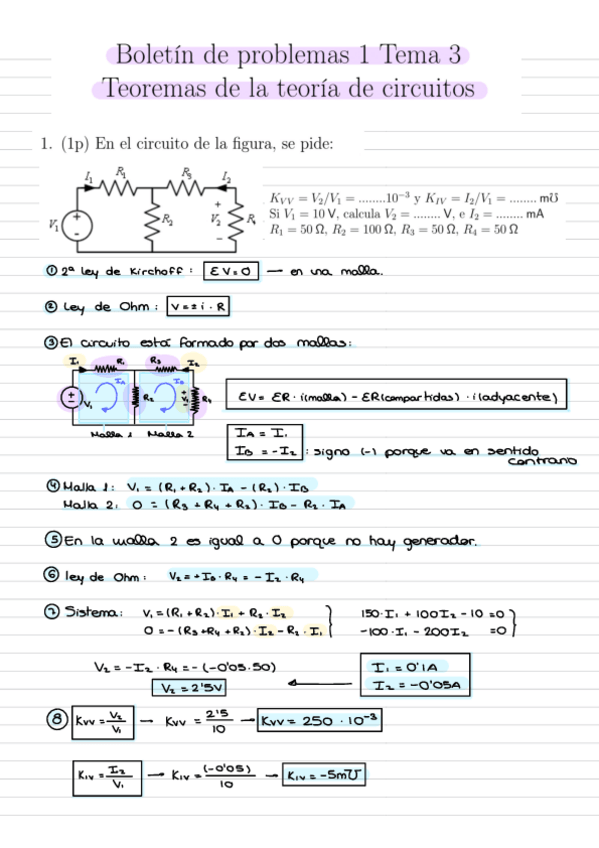 Boletín de problemas 1 Tema 3
Teoremas de la teoría de circuitos
1. (1p) En el circuito de la figura, se pide:
I₁ R₁ R₃ I₂
V₁ R₂ V₂ R₄
K_VV = V₂/V₁ = ........10⁻³ y K_IV = I₂/V₁ = ........ m℧
Si V₁ = 10 V, calcula V₂ = ........ V, e I₂ = ........ mA
R₁ = 50 Ω, R₂ = 100 Ω, R₃ = 50 Ω, R₄ = 50 Ω
① 2ª ley de Kirchoff: ΣV=0 — en una malla.
② Ley de Ohm: V=±i·R
③ El circuito está formado por dos mallas:
I₁ R₁ R₃ I₂
V₁ I_A R₂ I_B V₂ R₄
Malla 1 Malla 2
ΣV= ΣR·i(malla) - ΣR(compartidas)·i(adyacente)
I_A = I₁
I_B = -I₂ : signo (-) porque va en sentido
contrario
④ Malla 1: V₁ = (R₁+R₂)·I_A - (R₂)·I_B
Malla 2: 0 = (R₃+R₄+R₂)·I_B - R₂·I_A
⑤ En la malla 2 es igual a 0 porque no hay generador.
⑥ ley de Ohm: V₂=+I_B·R₄=-I₂·R₄
⑦ Sistema: V₁=(R₁+R₂)·I₁+R₂·I₂ 150·I₁+100I₂-10=0
0=-(R₃+R₄+R₂)·I₂-R₂·I₁ -100·I₁-200I₂ =0
V₂=-I₂·R₄=-(-0'05·50) I₁=0'1A
V₂=2'5V I₂=-0'05A
⑧ K_VV=V₂/V₁ → K_VV=2'5/10 → K_VV=250·10⁻³
K_IV=I₂/V₁ → K_IV=(-0'05)/10 → K_IV=-5m℧